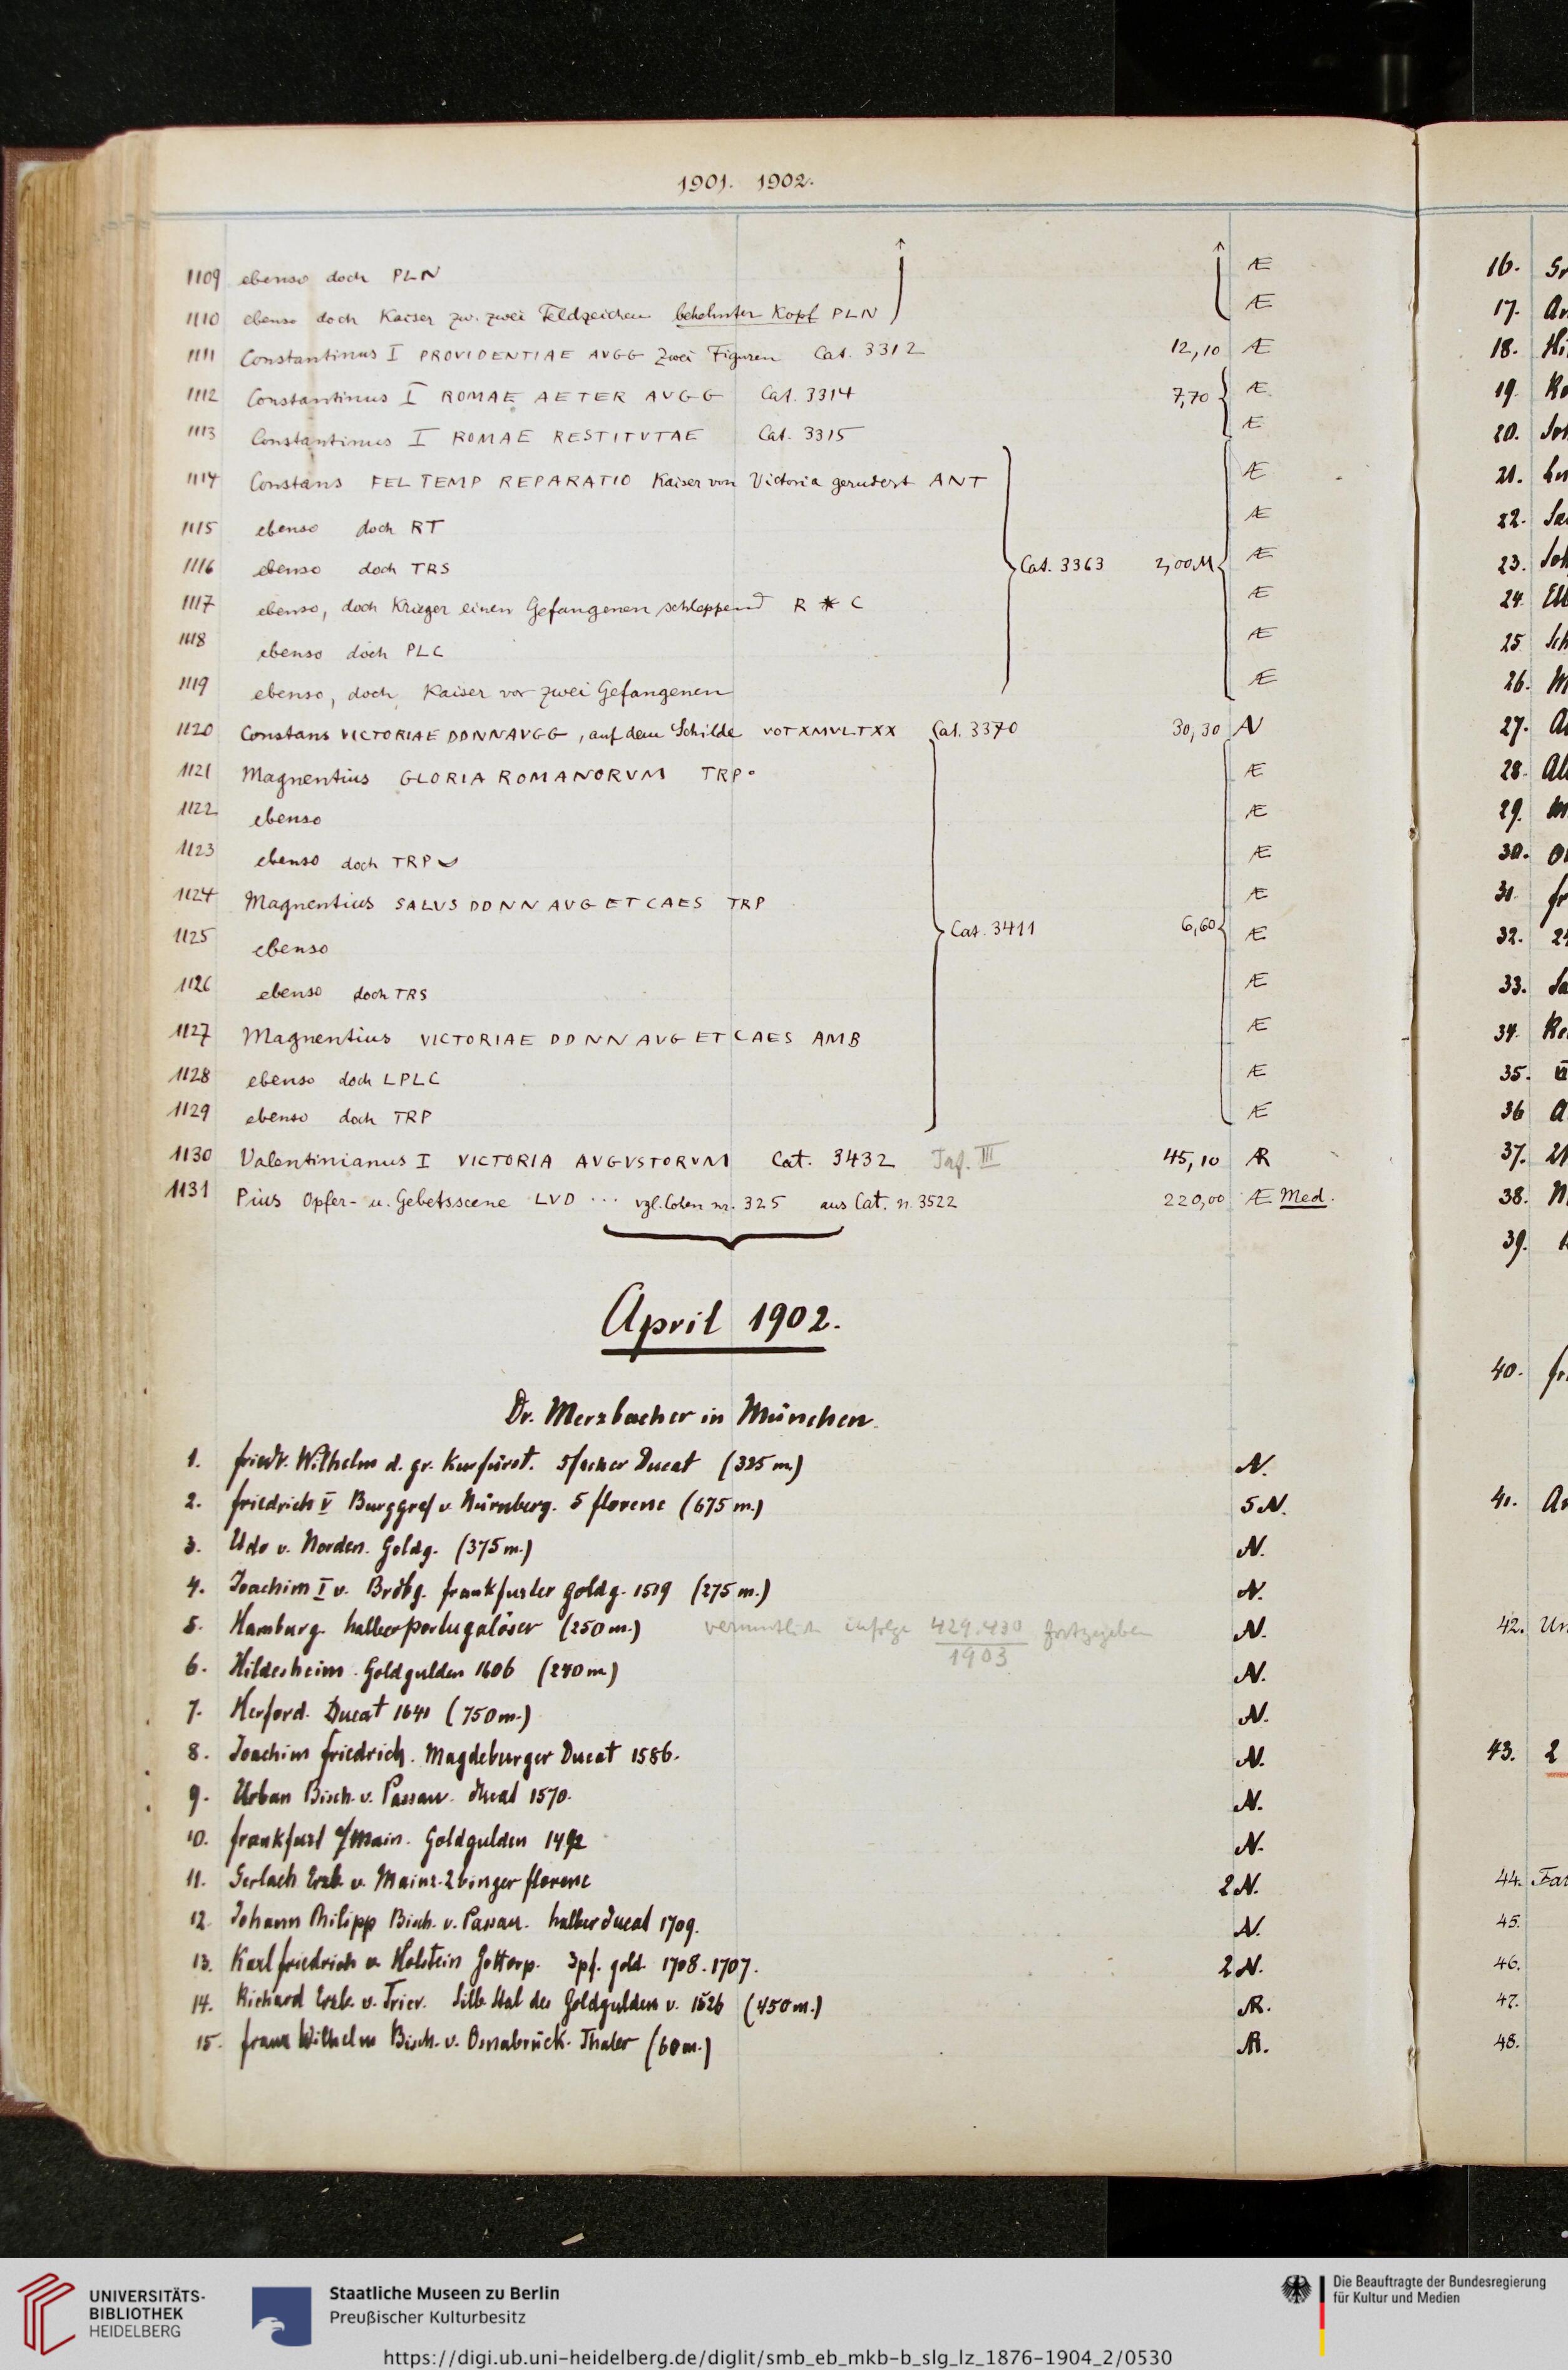 1901. 1902.
1109 ebenso doch PLN Æ
1110 ebenso doch Kaiser zw. zwei Feldzeichen behelmter Kopf PLN Æ
1111 Constantinus I PROVIDENTIAE AVGG Zwei Figuren Cat. 3312 12,10 Æ
1112 Constantinus I ROMAE AETER AVGG Cat. 3314 7,70 Æ
1113 Constantinus I ROMAE RESTITVTAE Cat. 3315 Æ
1114 Constans FEL TEMP REPARATIO Kaiser von Victoria gerudert ANT Æ
1115 ebenso doch RT Æ
1116 ebenso doch TRS Cat. 3363 2,00 M Æ
1117 ebenso, doch Krieger einen Gefangenen schleppend R * C Æ
1118 ebenso doch PLC Æ
1119 ebenso, doch Kaiser vor zwei Gefangenen Æ
1120 Constans VICTORIAE DDNNAVGG, auf dem Schilde VOTXMVLTXX Cat. 3370 30,30 N
1121 Magnentius GLORIA ROMANORVM TRP• Æ
1122 ebenso Æ
1123 ebenso doch TRP Æ
1124 Magnentius SALVS DDNN AVG ET CAES TRP Æ
1125 ebenso Cat. 3411 6,60 Æ
1126 ebenso doch TRS Æ
1127 Magnentius VICTORIAE DDNN AVG ET CAES AMB Æ
1128 ebenso doch LPLC Æ
1129 ebenso doch TRP Æ
1130 Valentinianus I VICTORIA AVGVSTORVM Cat. 3432 Taf. III 45,10 AR
1131 Pius Opfer- u. Gebetsscene LVD ... vgl. Cohen nr. 325 aus Cat. n. 3522 220,00 Æ Med.
April 1902.
Dr. Merzbacher in München.
1. Friedr. Wilhelm d. gr. Kurfürst. 5facher Ducat (325 m.) N.
2. Friedrich V Burggraf v. Nürnberg. 5 florene (675 m.) 5 N.
3. Udo v. Norden. Goldg. (375 m.) N.
4. Joachim I v. Brdbg. Frankfurter goldg. 1519 (275 m.) N.
5. Hamburg. halber portugalöser (250 m.) vermutlich infolge 429.430 fortgegeben N.
1903
6. Hildesheim. Goldgulden 1606 (240 m) N.
7. Herford. Ducat 1641 (750 m.) N.
8. Joachim Friedrich. Magdeburger Ducat 1586. N.
9. Urban Bisch. v. Passau. Ducat 1570. N.
10. Frankfurt a/Main. Goldgulden 1492 N.
11. Gerlach Erzb. v. Mainz. 2 binger florene 2 N.
12. Johann Philipp Bisch. v. Passau. halber Ducat 1709. N.
13. Karl Friedrich v. Holstein Gottorp. 3pf. gold. 1708. 1707. 2 N.
14. Richard Erzb. v. Trier. Silb. des Goldgulden v. 1526 (450 m.) AR.
15. Franz Wilhelm Bisch. v. Osnabrück. Thaler (60 m.) AR.
16.
17.
18.
19.
20.
21.
22.
23.
24.
25
26.
27.
28.
29.
30.
31.
32.
33.
34.
35.
36
37.
38.
39.
40.
41.
42.
43. 2
44.
45.
46.
47.
48.
UNIVERSITÄTS-
BIBLIOTHEK
HEIDELBERG
Staatliche Museen zu Berlin
Preußischer Kulturbesitz
Die Beauftragte der Bundesregierung
für Kultur und Medien
https://digi.ub.uni-heidelberg.de/diglit/smb_eb_mkb-b_slg_lz_1876-1904_2/0530